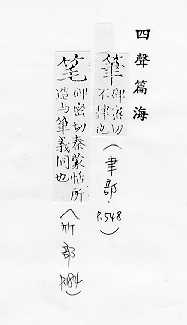 四聲篇海
筆 鄙密切
不律也
(聿部
P.548)
笔 鄙密切秦蒙恬所
造与筆義同也
(竹部